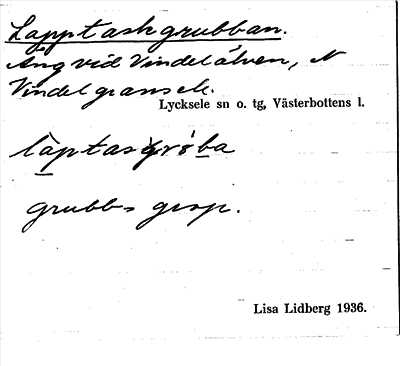 Lapptaskgrubban.
Äng vid Vindelälven, N
Vindelgransele.
Lycksele sn o. tg, Västerbottens l.
grubb- grop.
Lisa Lidberg 1936.